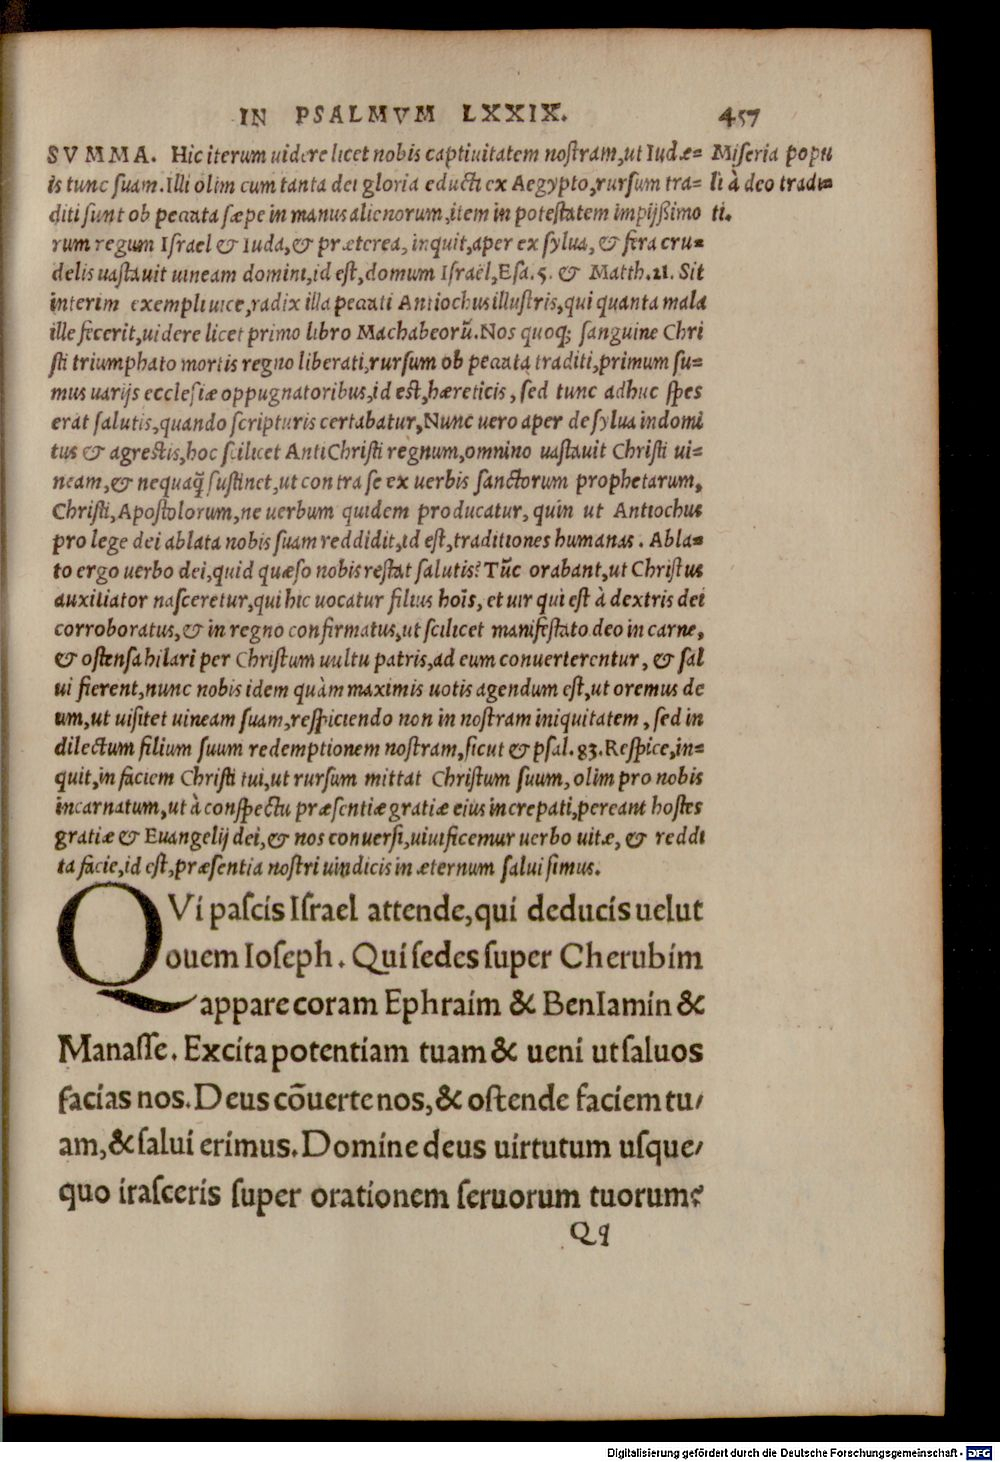 IN PSALMVM LXXIX. 457
SVMMA. Hic iterum uidere licet nobis captiuitatem nostram, ut Iudæ=
is tunc suam. Illi olim cum tanta dei gloria educti ex Aegypto, rursum tra=
diti sunt ob peccata sæpe in manus alienorum, item in potestatem impijßimo
rum regum Israel & Iuda, & præterea, inquit, aper ex sylua, & fera cru=
delis uastauit uineam domini, id est, domum Israël, Esa. 5. & Matth. 21. Sit
interim exempli uice, radix illa peccati Antiochus illustris, qui quanta mala
ille fecerit, uidere licet primo libro Machabeorũ. Nos quoq; sanguine Chri
sti triumphato mortis regno liberati, rursum ob peccata traditi, primum su=
mus uarijs ecclesiæ oppugnatoribus, id est, hæreticis, sed tunc adhuc spes
erat salutis, quando scripturis certabatur, Nunc uero aper de sylua indomi
tus & agrestis, hoc scilicet AntiChristi regnum, omnino uastauit Christi ui=
neam, & nequaq̃ sustinet, ut contra se ex uerbis sanctorum prophetarum,
Christi, Apostolorum, ne uerbum quidem producatur, quin ut Antiochus
pro lege dei ablata nobis suam reddidit, id est, traditiones humanas. Abla=
to ergo uerbo dei, quid quæso nobis restat salutis? Tũc orabant, ut Christus
auxiliator nasceretur, qui hic uocatur filius hoīs, et uir qui est à dextris dei
corroboratus, & in regno confirmatus, ut scilicet manifestato deo in carne,
& ostensa hilari per Christum uultu patris, ad eum conuerterentur, & sal
ui fierent, nunc nobis idem quàm maximis uotis agendum est, ut oremus de
um, ut uisitet uineam suam, respiciendo non in nostram iniquitatem, sed in
dilectum filium suum redemptionem nostram, sicut & psal. 83. Respice, in=
quit, in faciem Christi tui, ut rursum mittat Christum suum, olim pro nobis
incarnatum, ut à conspectu præsentiæ gratiæ eius increpati, pereant hostes
gratiæ & Euangelij dei, & nos conuersi, uiuificemur uerbo uitæ, & reddi
ta facie, id est, præsentia nostri uindicis in æternum salui simus.
Miseria popu
li à deo tradi=
ti.
QVi pascis Israel attende, qui deducis uelut
ouem Ioseph. Qui sedes super Cherubim
appare coram Ephraim & BenIamin &
Manasse. Excita potentiam tuam & ueni ut saluos
facias nos. Deus cõuerte nos, & ostende faciem tu/
am, & salui erimus. Domine deus uirtutum usque/
quo irasceris super orationem seruorum tuorum?
Qq
Digitalisierung gefördert durch die Deutsche Forschungsgemeinschaft - DFG